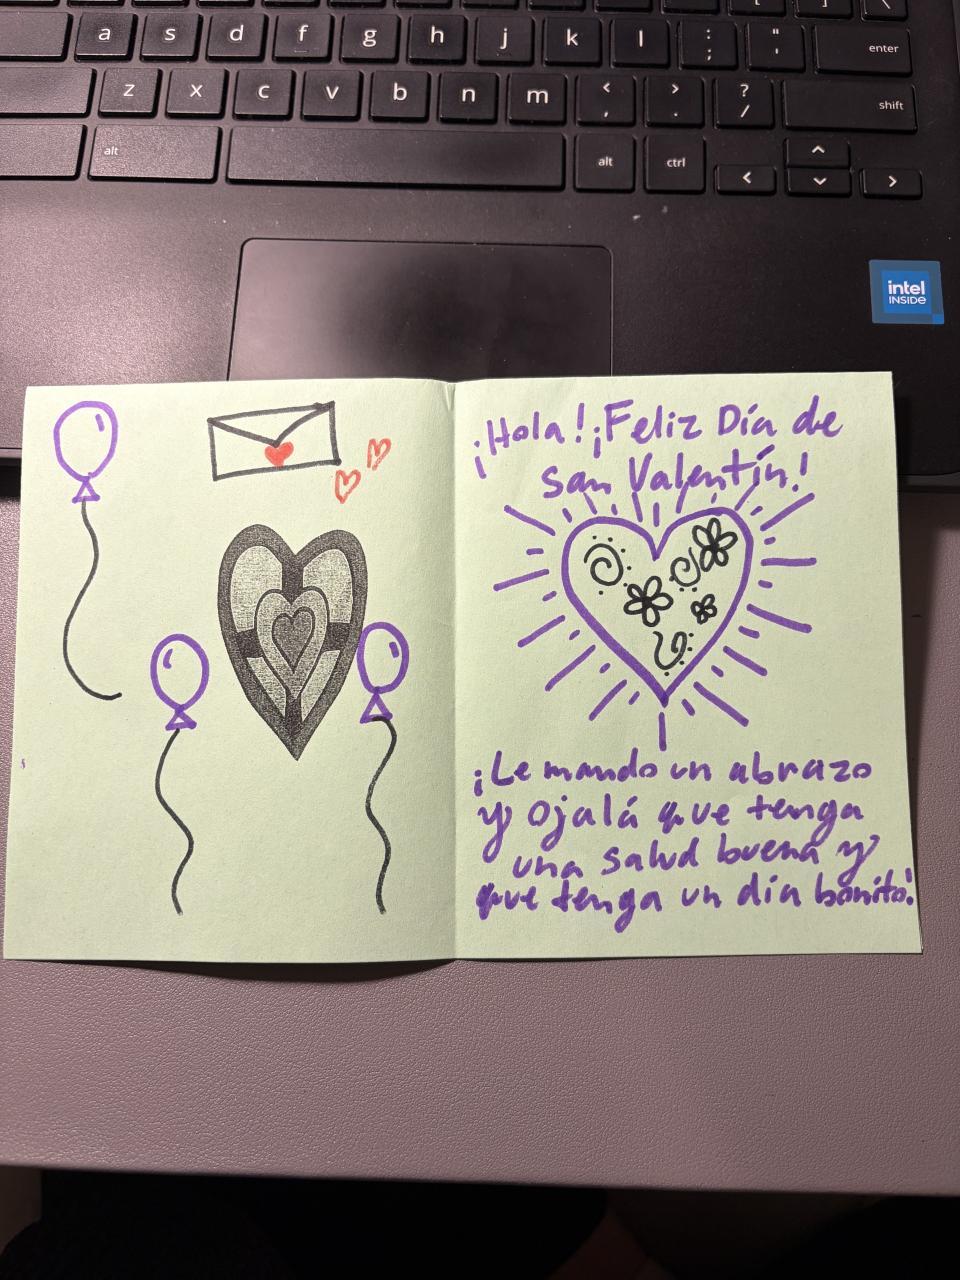 [ ] \
a s d f g h j k l : ; " ' enter
z x c v b n m < , > . ? / shift
alt alt ctrl < ^ v >
intel
INSIDE
¡Hola! ¡Feliz Día de
san Valentín!
¡Le mando un abrazo
y Ojalá que tenga
una salud buena y
que tenga un día bonito!